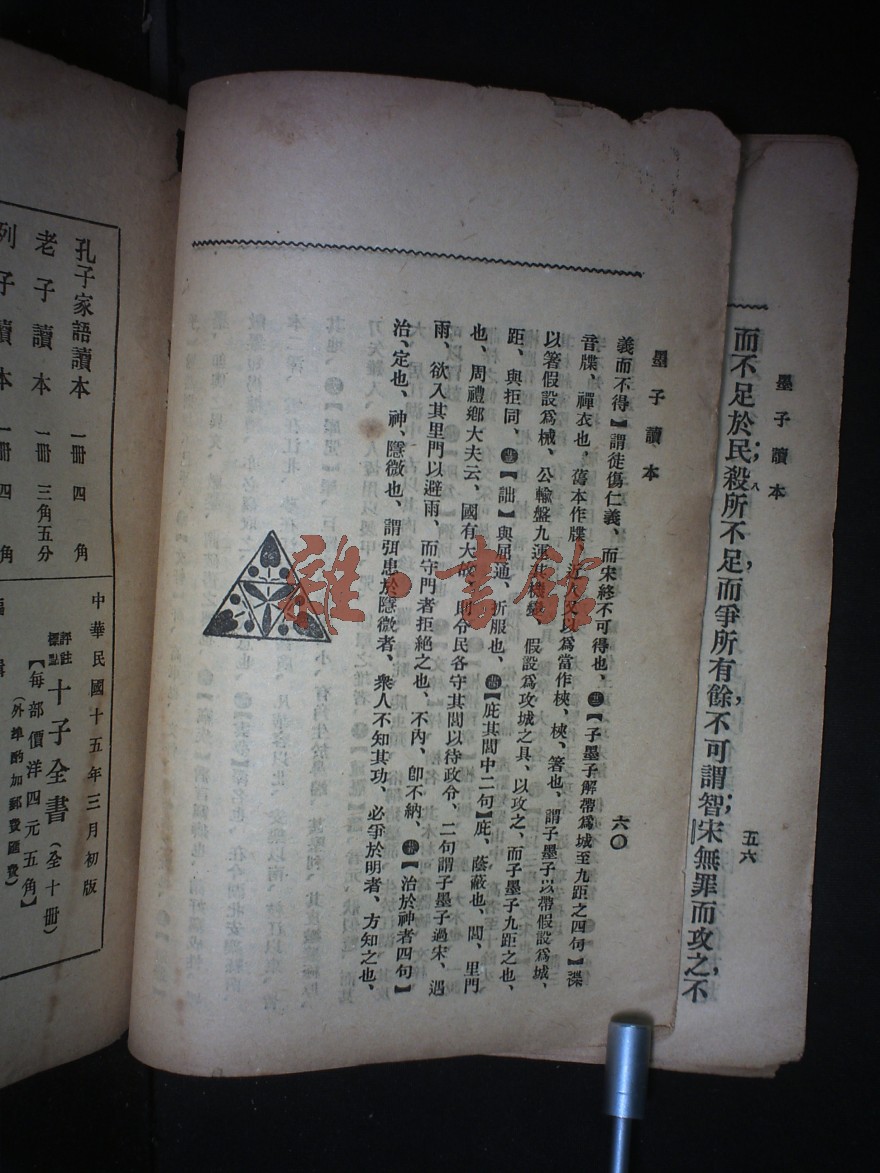 而不足於民；殺所不足，而爭所有餘，不可謂智；宋無罪而攻之，不
墨子讀本
五六
墨子讀本
六〇
義而不得】謂徒傷仁義、而宋終不可得也、【子墨子解帶爲城至九距之四句】渫
音牒、襌衣也、舊本作牒、近人又以爲當作梜、梜、箸也、謂子墨子以帶假設爲城、
以箸假設爲械、公輸盤九運其機變、假設爲攻城之具、以攻之、而子墨子九距之也、
距、與拒同、【詘】與屈通、折服也、【庇其閭中二句】庇、蔭蔽也、閭、里門
也、周禮鄉大夫云、國有大故、則令民各守其閭以待政令、二句謂子墨子過宋、遇
雨、欲入其里門以避雨、而守門者拒絕之也、不內、卽不納、【治於神者四句】
治、定也、神、隱微也、謂弭患於隱微者、衆人不知其功、必爭於明者、方知之也、
雜·書館
孔子家語讀本 一冊 四角
老子讀本 一冊 三角五分
列子讀本 一冊 四角
中華民國十五年三月初版
評註標點 十子全書（全十冊）
【每部價洋四元五角】
（外埠酌加郵費匯費）